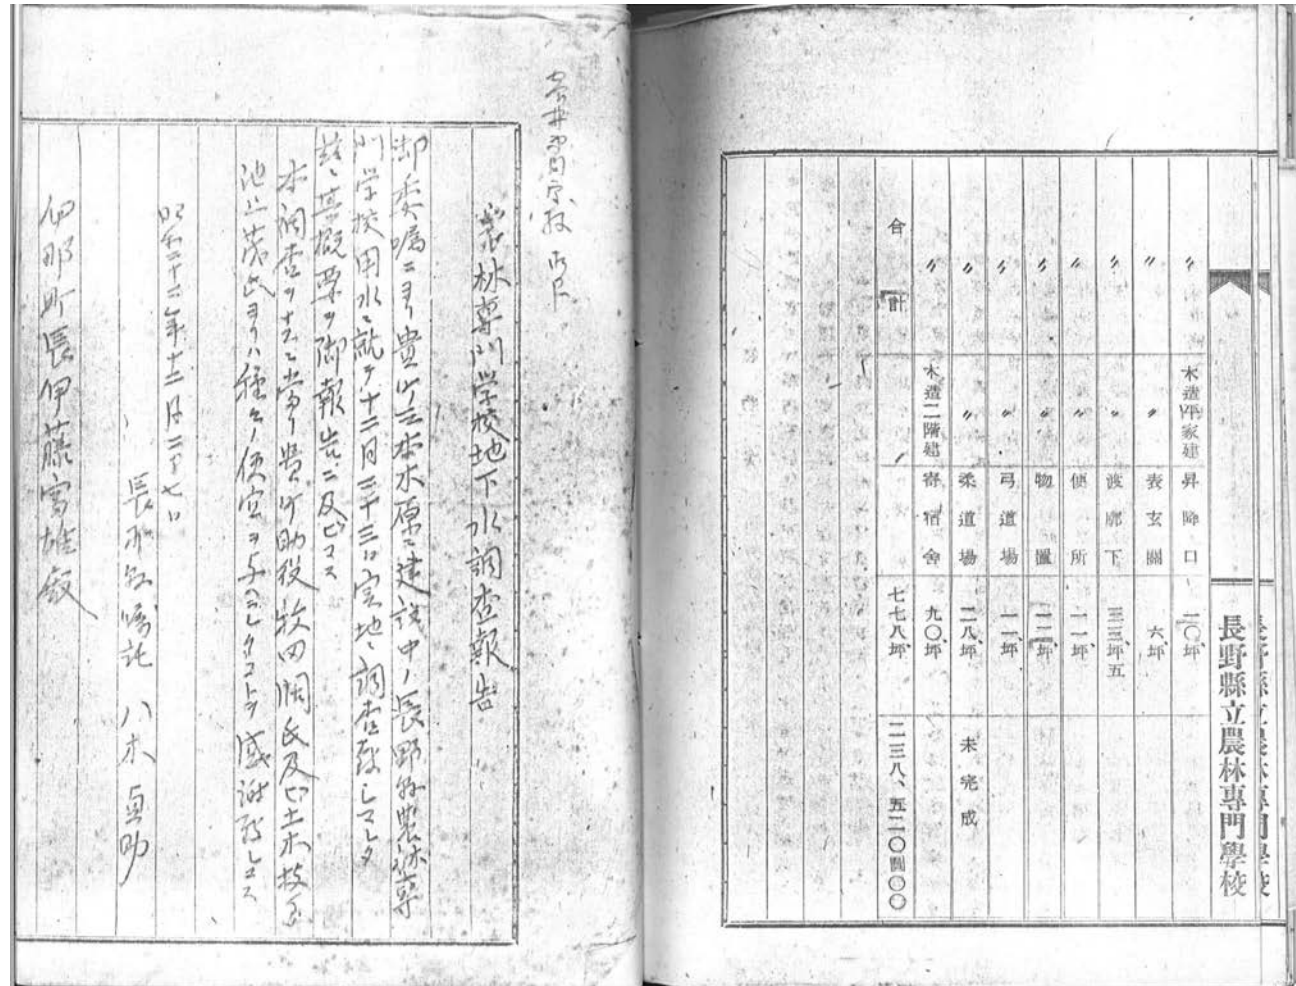 長野縣立農林專門學校
〃 木造平家建 昇降口 二〇、坪
〃 〃 表玄關 六、坪
〃 〃 渡廊下 三三、坪五
〃 〃 便所 一一、坪
〃 〃 物置
〃 〃 弓道場 一一、坪
〃 〃 柔道場 二八、坪 未完成
〃 木造二階建 寄宿舍 九〇、坪
合計 七七八、坪 二三八、五二〇圓〇〇
農林専門学校地下水調査報告
御委嘱ニヨリ貴町三本木原ニ建設中ノ長野縣農林専
門学校用水ニ就テ十二月二十三日実地ニ調査致シマシタ
茲ニ其概要ヲ御報告ニ及ビマス
本調査ヲナスニ当リ貴町助役牧田 氏及ビ土木技手
池上茂氏ヨリハ種々ノ便宜ヲ与ヘラレタコトヲ感謝致シマス
昭和二十二年十二月二十七日
長野縣嘱託 八木貞助
伊那町長伊藤 雄殿